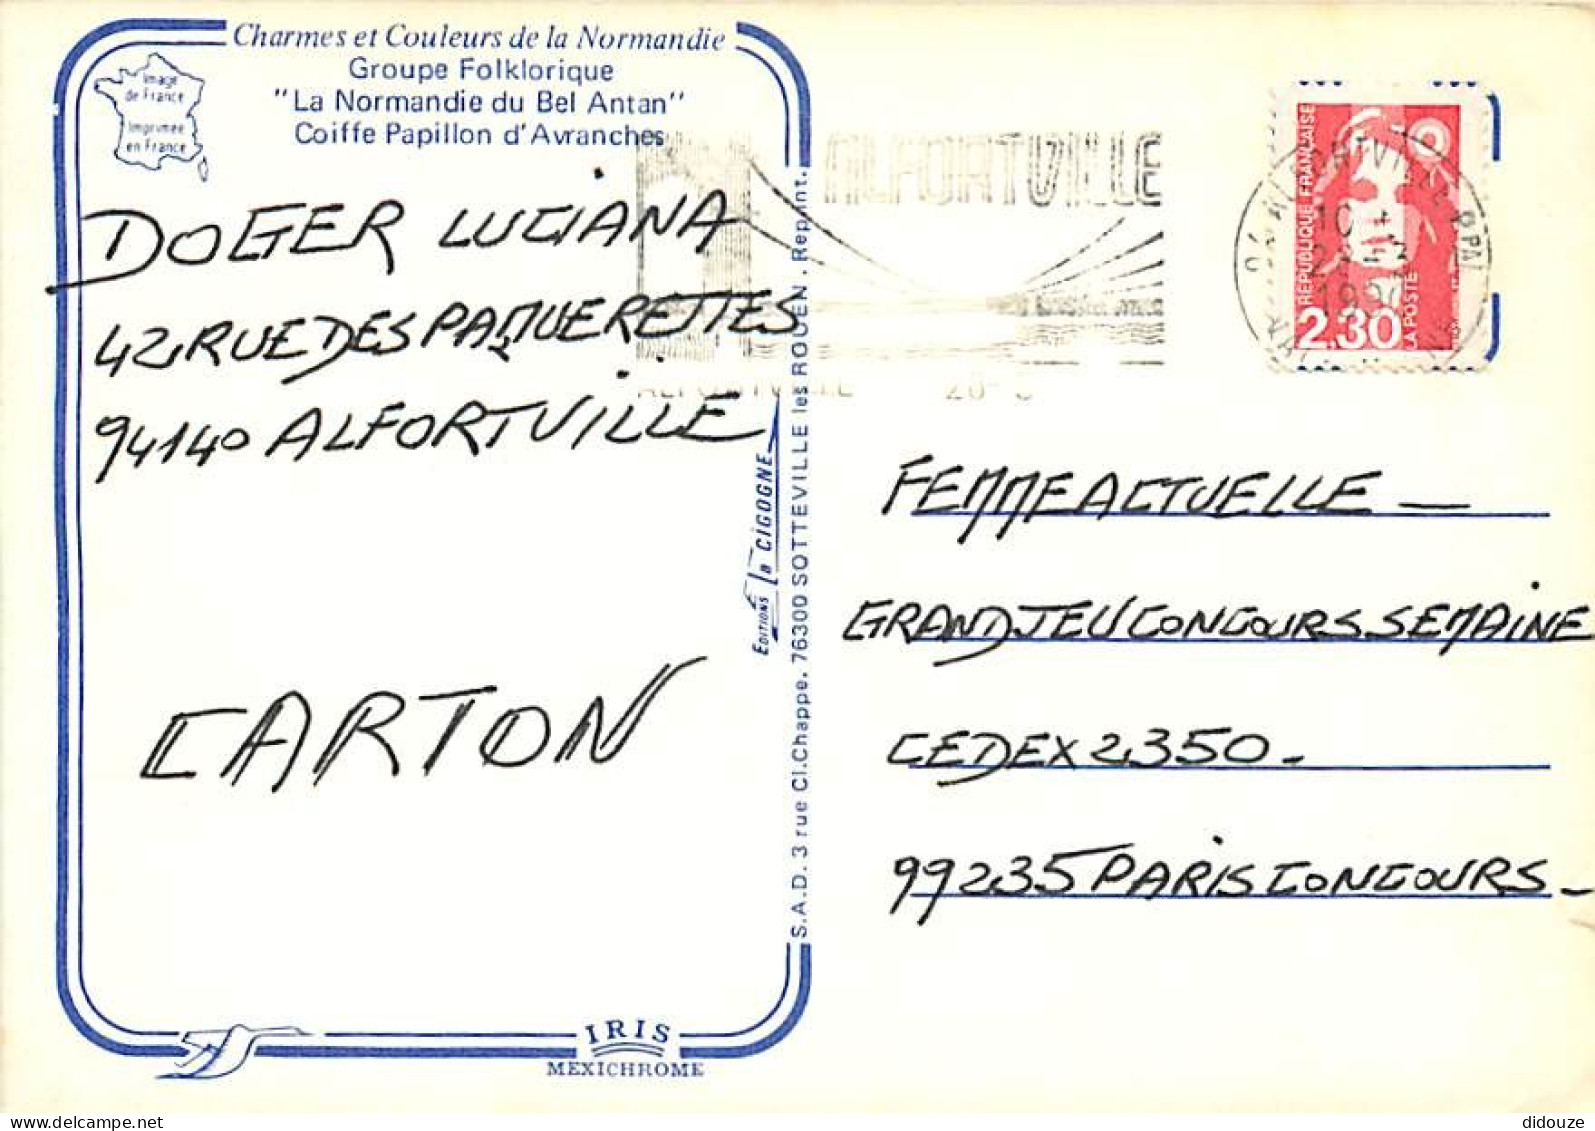 Charmes et Couleurs de la Normandie
Groupe Folklorique
"La Normandie du Bel Antan"
Coiffe Papillon d'Avranches
Image
de France
Imprimée
en France
DOGER LUCIANA
42 RUE DES PAQUERETTES
94140 ALFORTVILLE
CARTON
ALFORTVILLE
ALFORTVILLE
RÉPUBLIQUE FRANÇAISE
2,30
LA POSTE
FEMME ACTUELLE —
GRAND JEU CONCOURS SEMAINE
CEDEX 2350 -
99235 PARIS CONCOURS -
EDITIONS la CIGOGNE
S.A.D. 3 rue Cl.Chappe, 76300 SOTTEVILLE les ROUEN . Rep. int.
IRIS
MEXICHROME
delcampe.net
didouze